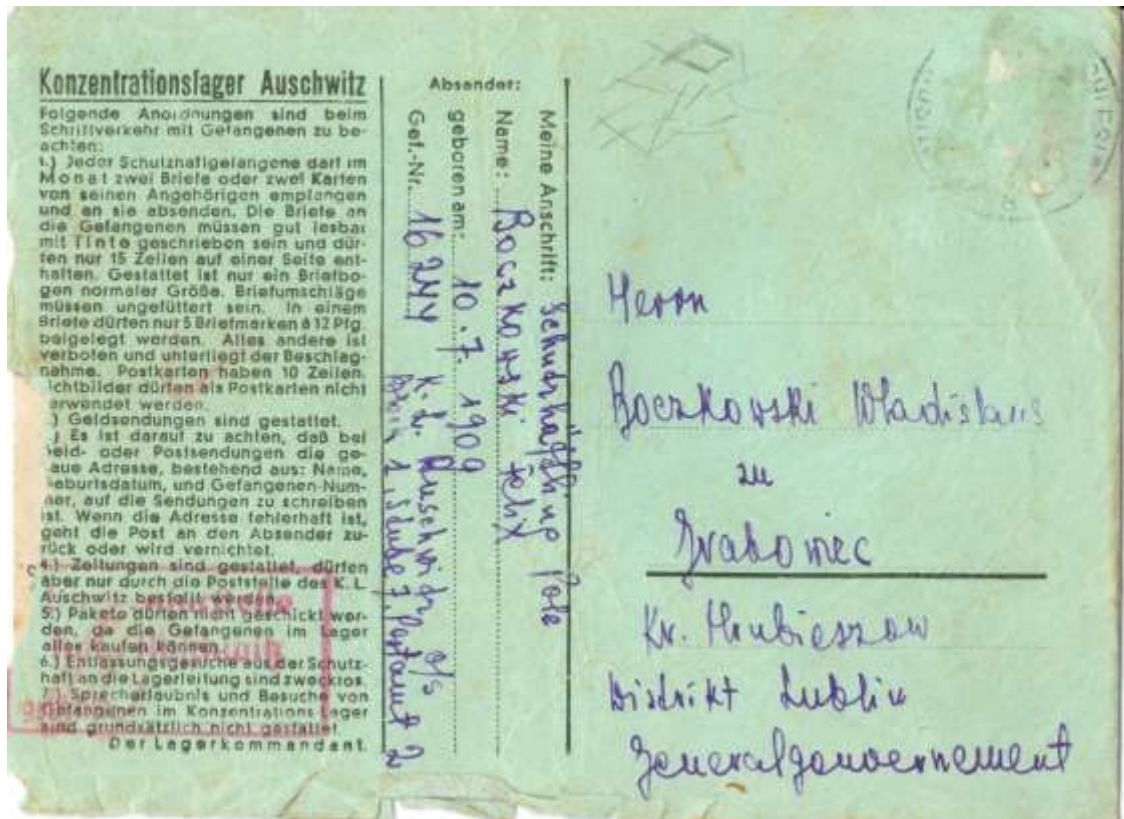 Konzentrationslager Auschwitz
Folgende Anordnungen sind beim
Schriftverkehr mit Gefangenen zu be-
achten:
1.) Jeder Schutzhaftgefangene darf im
Monat zwei Briefe oder zwei Karten
von seinen Angehörigen empfangen
und an sie absenden. Die Briefe an
die Gefangenen müssen gut lesbar
mit Tinte geschrieben sein und dür-
fen nur 15 Zeilen auf einer Seite ent-
halten. Gestattet ist nur ein Briefbo-
gen normaler Größe. Briefumschläge
müssen ungefüttert sein. In einem
Briefe dürfen nur 5 Briefmarken à 12 Pfg.
beigelegt werden. Alles andere ist
verboten und unterliegt der Beschlag-
nahme. Postkarten haben 10 Zeilen.
ichtbilder dürfen als Postkarten nicht
erwendet werden.
.) Geldsendungen sind gestattet.
) Es ist darauf zu achten, daß bei
eld- oder Postsendungen die ge-
aue Adresse, bestehend aus: Name,
eburtsdatum, und Gefangenen-Num-
mer, auf die Sendungen zu schreiben
ist. Wenn die Adresse fehlerhaft ist,
geht die Post an den Absender zu-
rück oder wird vernichtet.
4.) Zeitungen sind gestattet, dürfen
aber nur durch die Poststelle des K. L.
Auschwitz bestellt werden.
5.) Pakete dürfen nicht geschickt wer-
den, da die Gefangenen im Lager
alles kaufen können.
6.) Entlassungsgesuche aus der Schutz-
haft an die Lagerleitung sind zwecklos.
7.) Sprecherlaubnis und Besuche von
Gefangenen im Konzentrations-Lager
sind grundsätzlich nicht gestattet.
Der Lagerkommandant.
Absender:
Meine Anschrift: Pole
Name: Boczkowski Felix
geboren am: 10. 7. 1909
Gef.-Nr. 16244 K. L. Auschwitz o/s
1, Stube 7, Postamt 2
Herrn
Boczkowski Wladislaus
zu
Grabowiec
Kr. Hrubieszow
Distrikt Lublin
Generalgouvernement